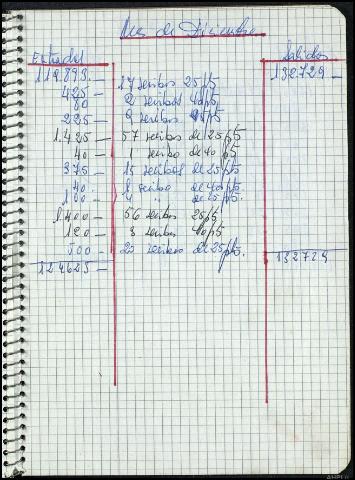 Mes de Diciembre
Entradas Salidas
119.893.— 132.729—
425— 17 recibos 25 pts
80 2 recibos 40 pts
225— 9 recibos 25 pts
1.425— 57 recibos de 25 pts
40— 1 recibo de 40 pts
375— 15 recibos de 25 pts
40. 1 recibo de 40 pts.
100— 4 " de 25 pts.
1.400— 56 recibos 25 pts
120— 3 recibos 40 pts
500— 20 recibos de 25 pts.
124.623— 132729